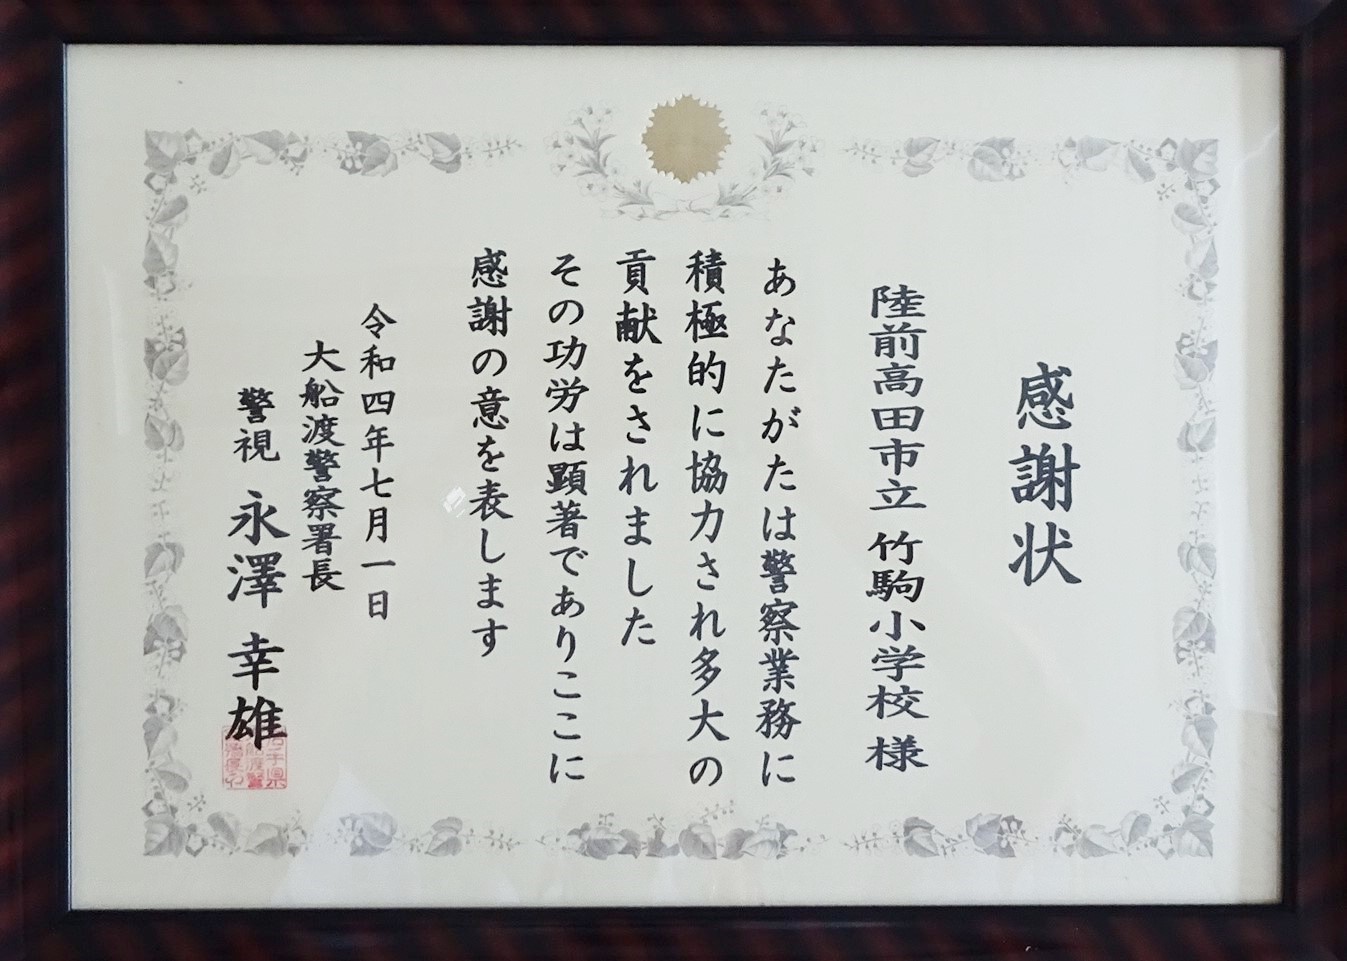 感謝状
陸前高田市立 竹駒小学校 様
あなたがたは警察業務に
積極的に協力され多大の
貢献をされました
その功労は顕著でありここに
感謝の意を表します
令和四年七月一日
大船渡警察署長
警視 永澤 幸雄